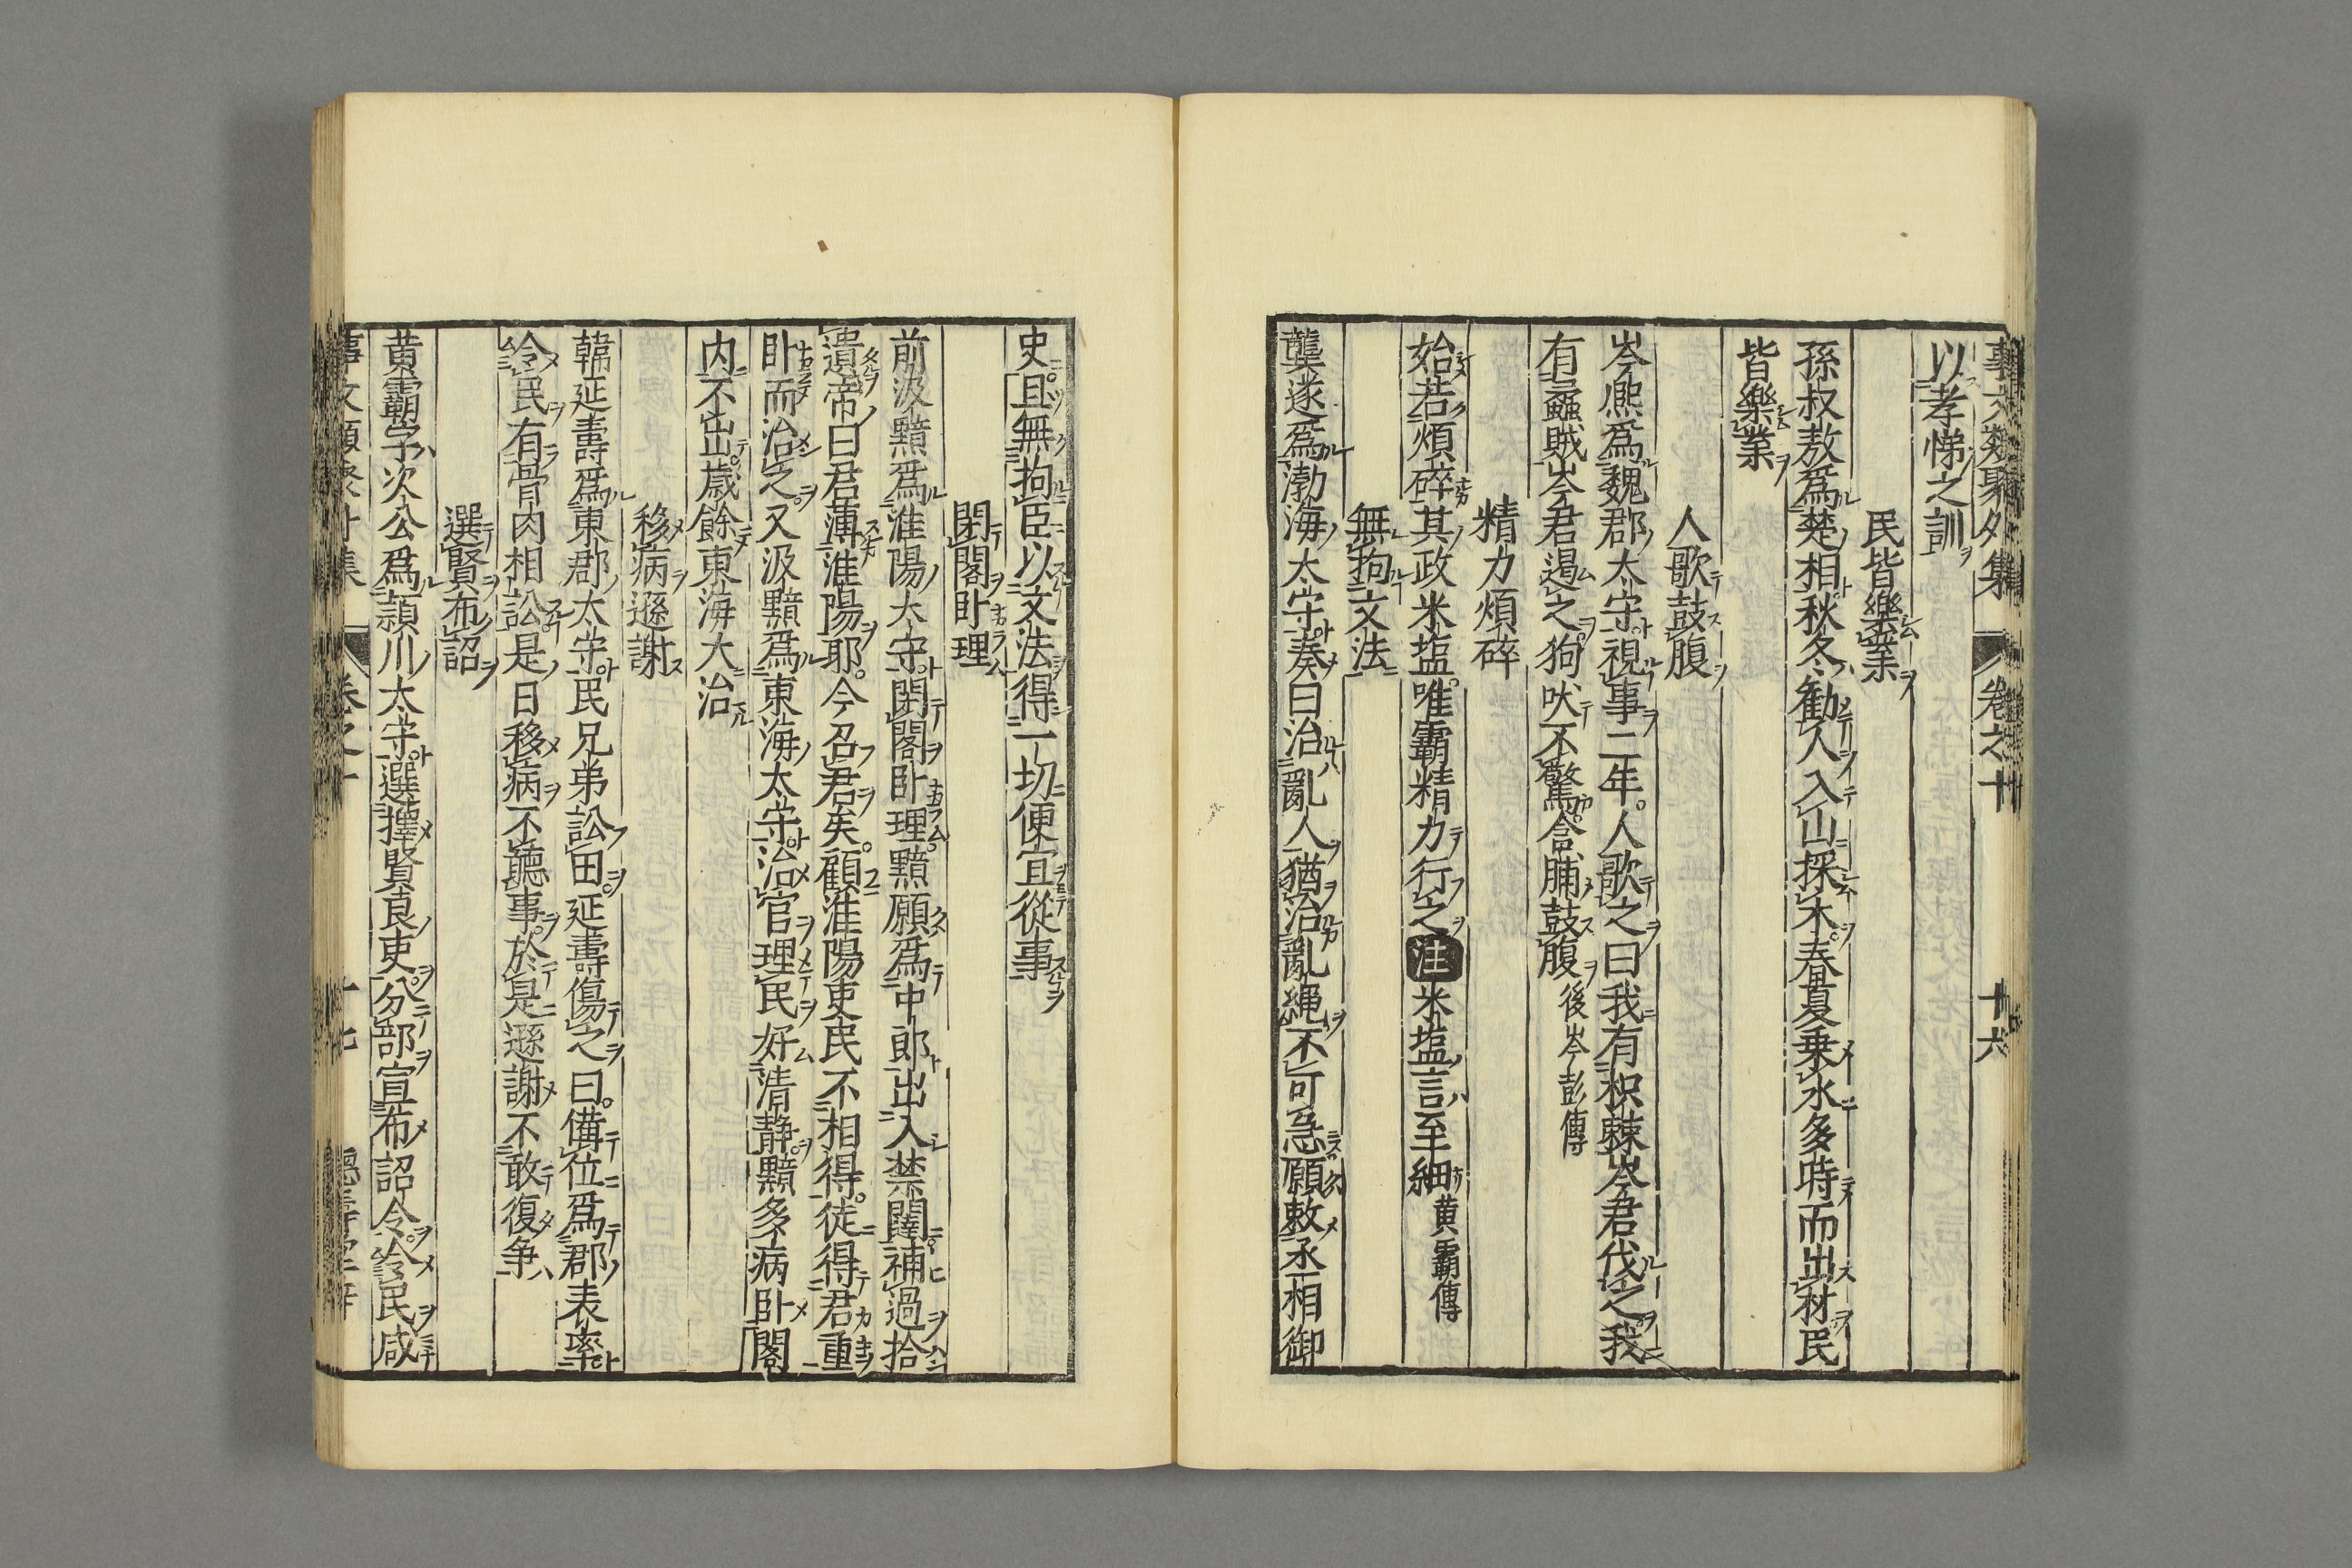 事文類聚外集 卷之十 十六
以孝悌之訓
民皆樂業
孫叔敖爲楚相秋冬勸人入山採木春夏乗水多時而出材民
皆樂業
人歌鼓腹
岑熈爲魏郡太守視事二年人歌之曰我有枳棘岑君伐之我
有蟊賊岑君遏之狗吠不驚含脯鼓腹後岑彭傳
精力煩碎
始若煩碎其政米塩唯霸精力行之注米塩言至細黄霸傳
無拘文法
龔遂爲渤海太守奏曰治亂人猶治亂縄不可急願敕丞相御
史且無拘臣以文法得一切便宜從事
閉閣卧理
前汲黯爲淮陽太守閉閣卧理黯願爲中郎出入禁闥補過拾
遺帝曰君薄淮陽耶今召君矣顧淮陽吏民不相得徒得君重
卧而治之又汲黯爲東海太守治官理民好清静黯多病卧閣
内不出歳餘東海大治
移病遜謝
韓延壽爲東郡太守民兄弟訟田延壽傷之曰備位爲郡表率
令民有骨肉相訟是日移病不聽事於是遜謝不敢復争
選賢布詔
黄霸字次公爲頴川太守選擇賢良吏分部宣布詔令令民咸